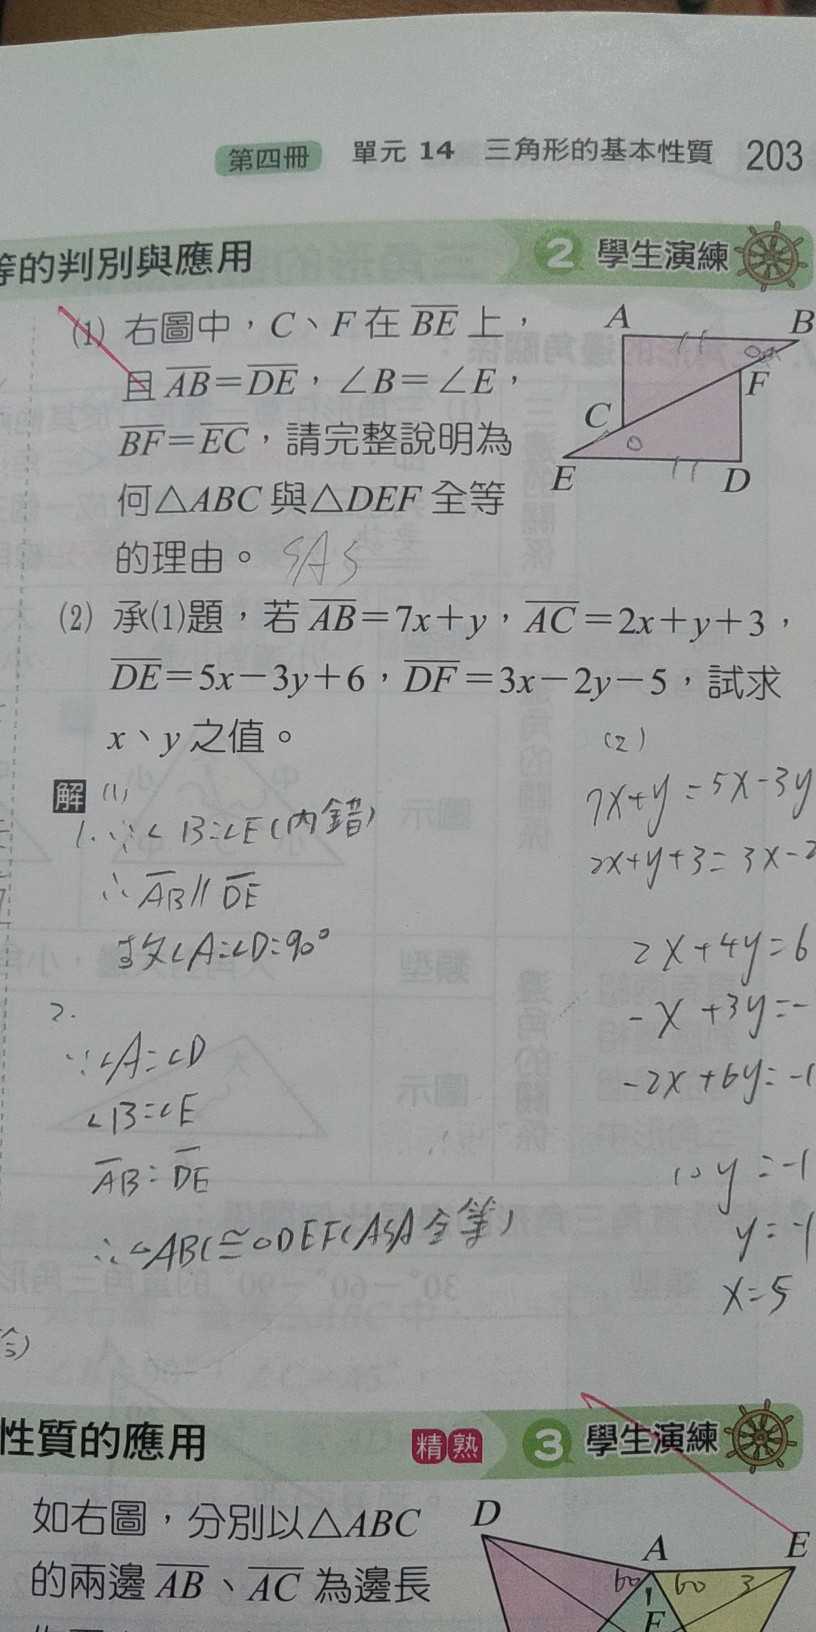 第四冊 單元 14 三角形的基本性質 203
等的判別與應用 2 學生演練
(1) 右圖中，C、F 在 BE 上，
且 AB＝DE，∠B＝∠E，
BF＝EC，請完整說明為
何△ABC 與△DEF 全等
的理由。 SAS
A B F C E D
(2) 承(1)題，若 AB＝7x＋y，AC＝2x＋y＋3，
DE＝5x－3y＋6，DF＝3x－2y－5，試求
x、y 之值。
解 (1)
1. ∵∠B=∠E(內錯)
∴AB//DE
故∠A=∠D=90°
2.
∵∠A=∠D
∠B=∠E
AB=DE
∴△ABC≅△DEF(ASA全等)
(2)
7x+y=5x-3y
2x+y+3=3x-2
2x+4y=6
-x+3y=-
-2x+6y=-1
10y=-1
y=-1
x=5
性質的應用 精熟 3 學生演練
如右圖，分別以△ABC
的兩邊 AB、AC 為邊長
D A E
60 1 60 3
F